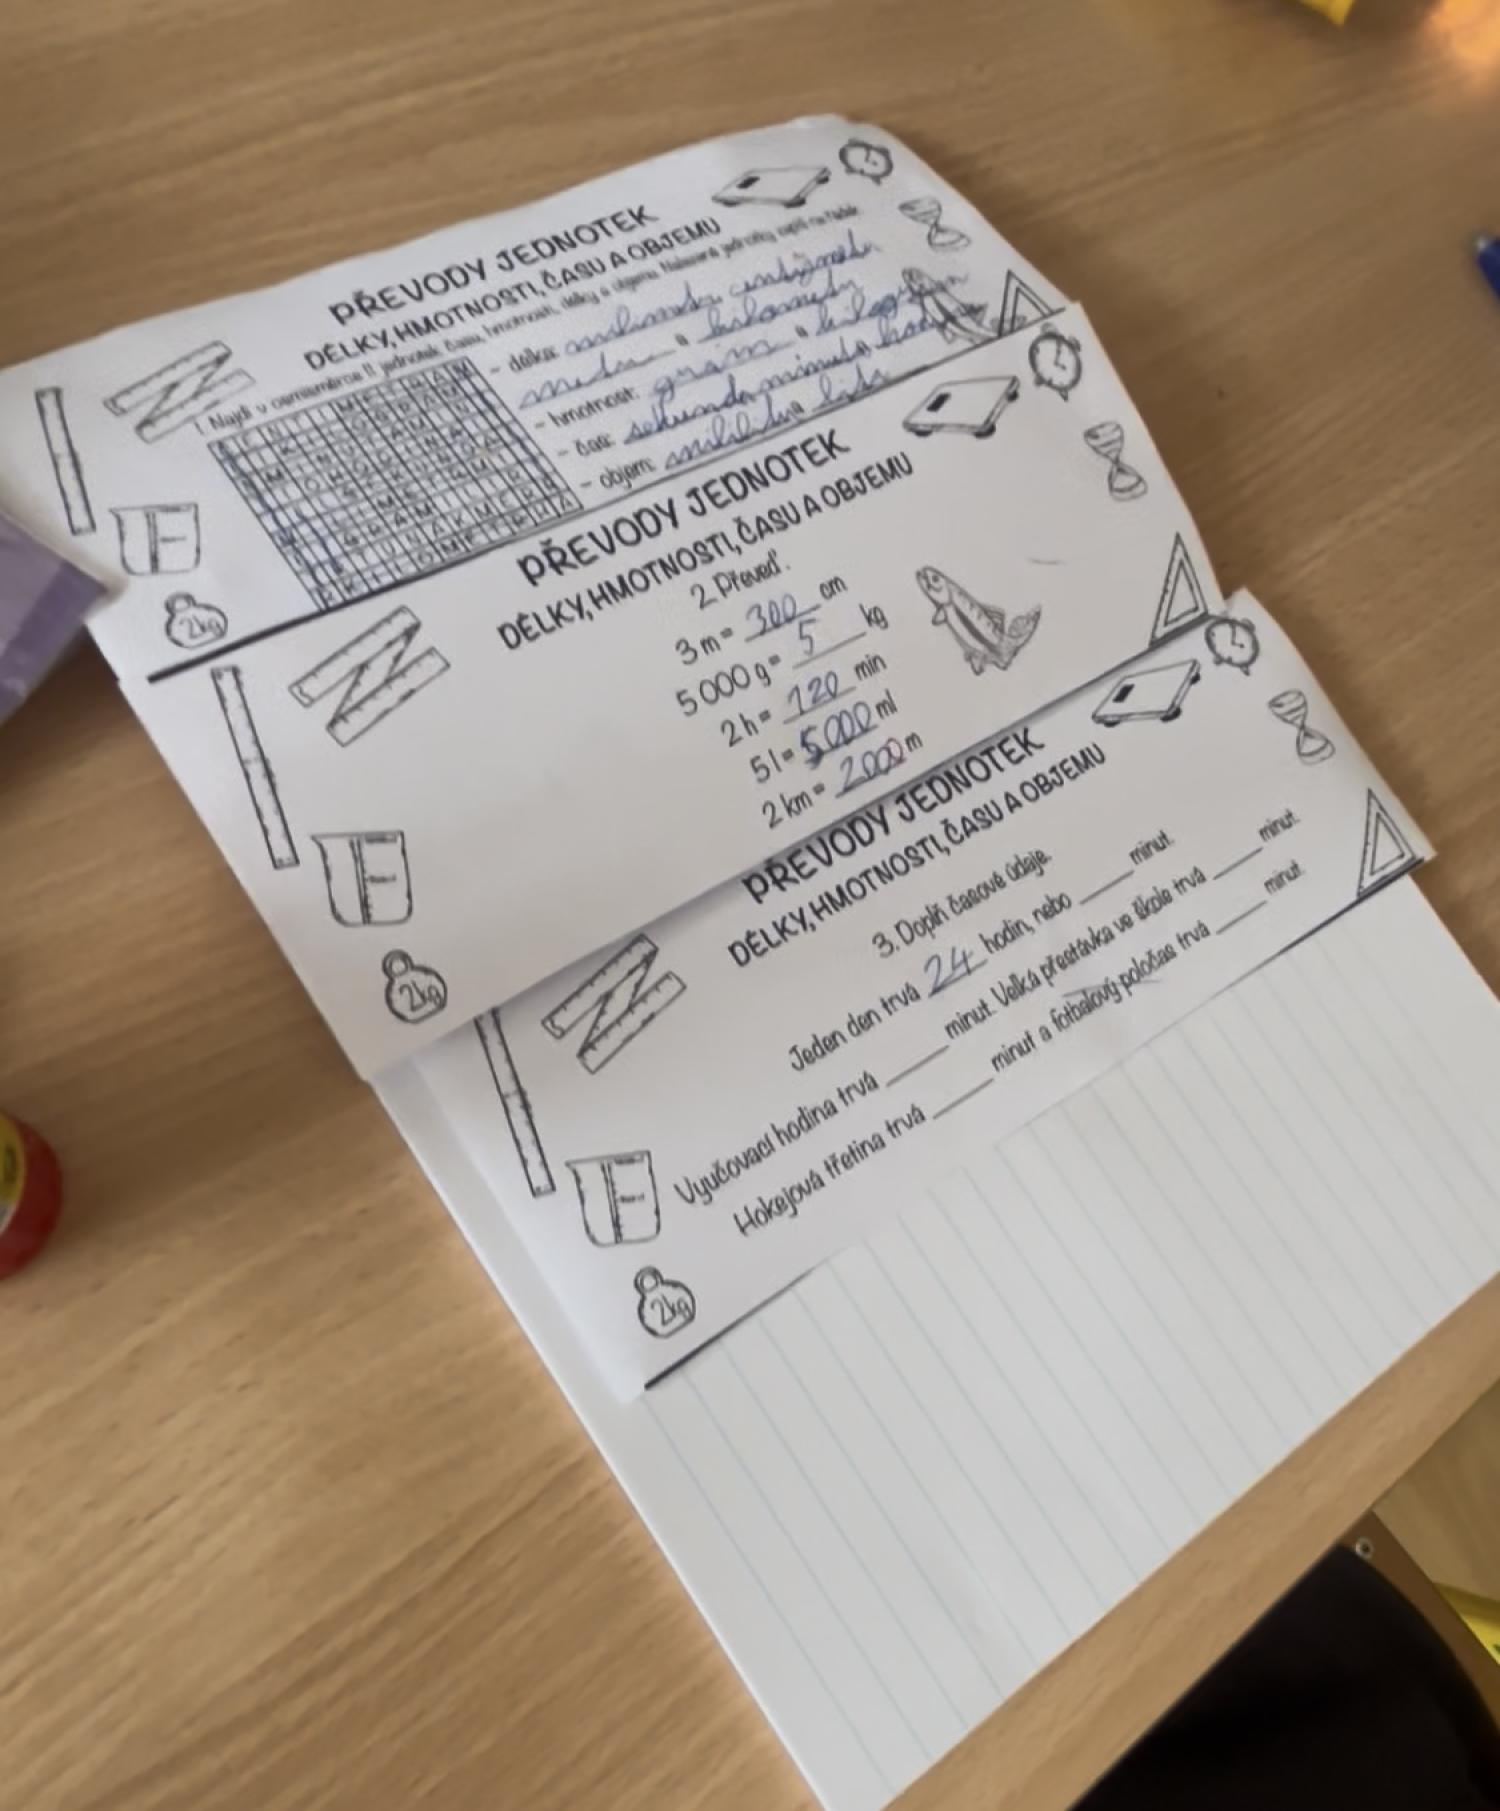 PŘEVODY JEDNOTEK
DÉLKY, HMOTNOSTI, ČASU A OBJEMU
1. Najdi v osmisměrce 11 jednotek času, hmotnosti, délky a objemu. Nalezené jednotky zapiš na řádek.
- délka: centimetr
metr a kilometr
- hmotnost: gram a kilogram
- čas: sekunda minuta
- objem: mililitr a litr
2kg
PŘEVODY JEDNOTEK
DÉLKY, HMOTNOSTI, ČASU A OBJEMU
2. Převeď.
3 m = 300 cm
5 000 g = 5 kg
2 h = 120 min
5 l = 5000 ml
2 km = 2000 m
2kg
PŘEVODY JEDNOTEK
DÉLKY, HMOTNOSTI, ČASU A OBJEMU
3. Doplň časové údaje.
Jeden den trvá 24 hodin, nebo ____ minut.
Vyučovací hodina trvá ____ minut. Velká přestávka ve škole trvá ____ minut.
Hokejová třetina trvá ____ minut a fotbalový poločas trvá ____ minut.
2kg